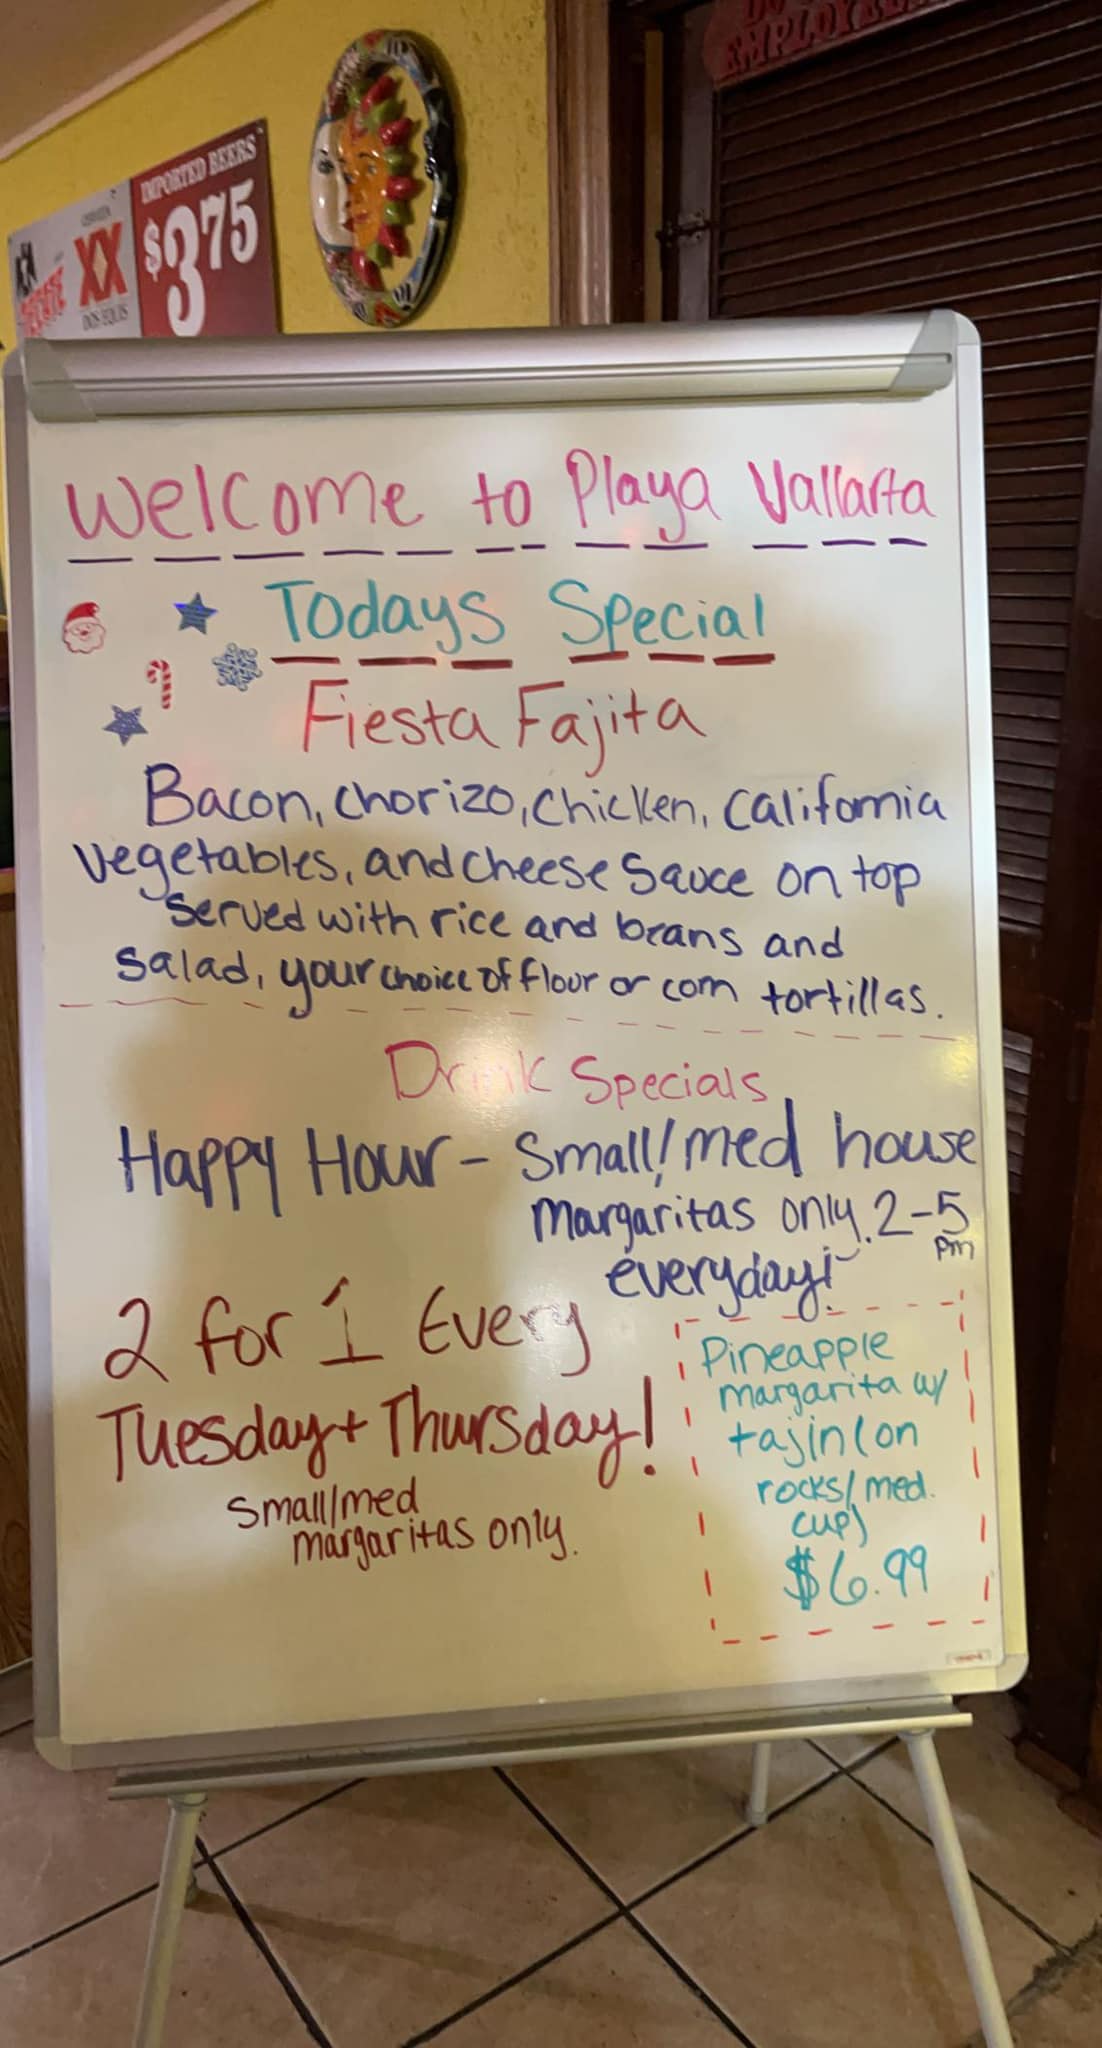 DO
EMPLOYEE
IMPORTED BEERS
$3.75
TECATE
XX
DOS EQUIS
Welcome to Playa Vallarta
Todays Special
Fiesta Fajita
Bacon, chorizo, chicken, california
vegetables, and cheese sauce on top
served with rice and beans and
salad, your choice of flour or corn tortillas.
Drink Specials
Happy Hour - Small/med house
margaritas only. 2-5
pm
everyday!
2 for 1 Every
Tuesday + Thursday!
small/med
margaritas only.
Pineapple
margarita w/
tajin (on
rocks/med.
cup)
$6.99